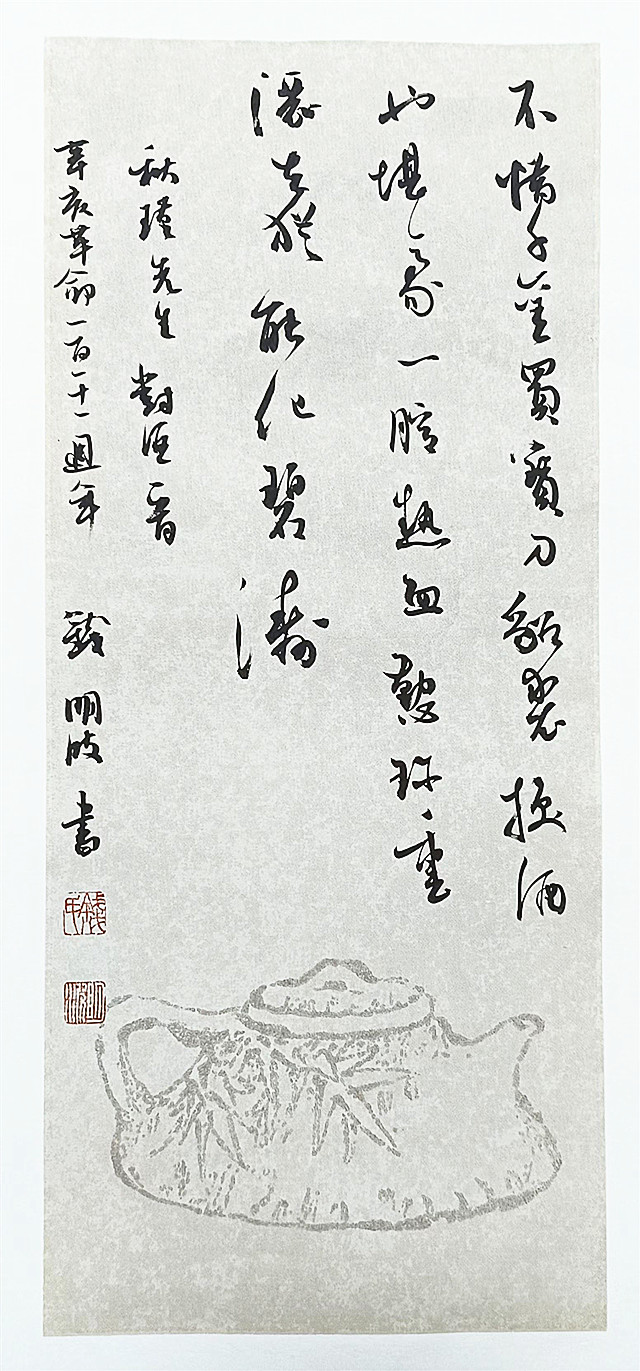 不惜千金買寶刀貂裘換酒
也堪豪一腔熱血懃珍重
灑去猶能化碧濤
秋瑾先生 對酒一首
辛亥革命一百一十一週年 錢明 書
錢氏